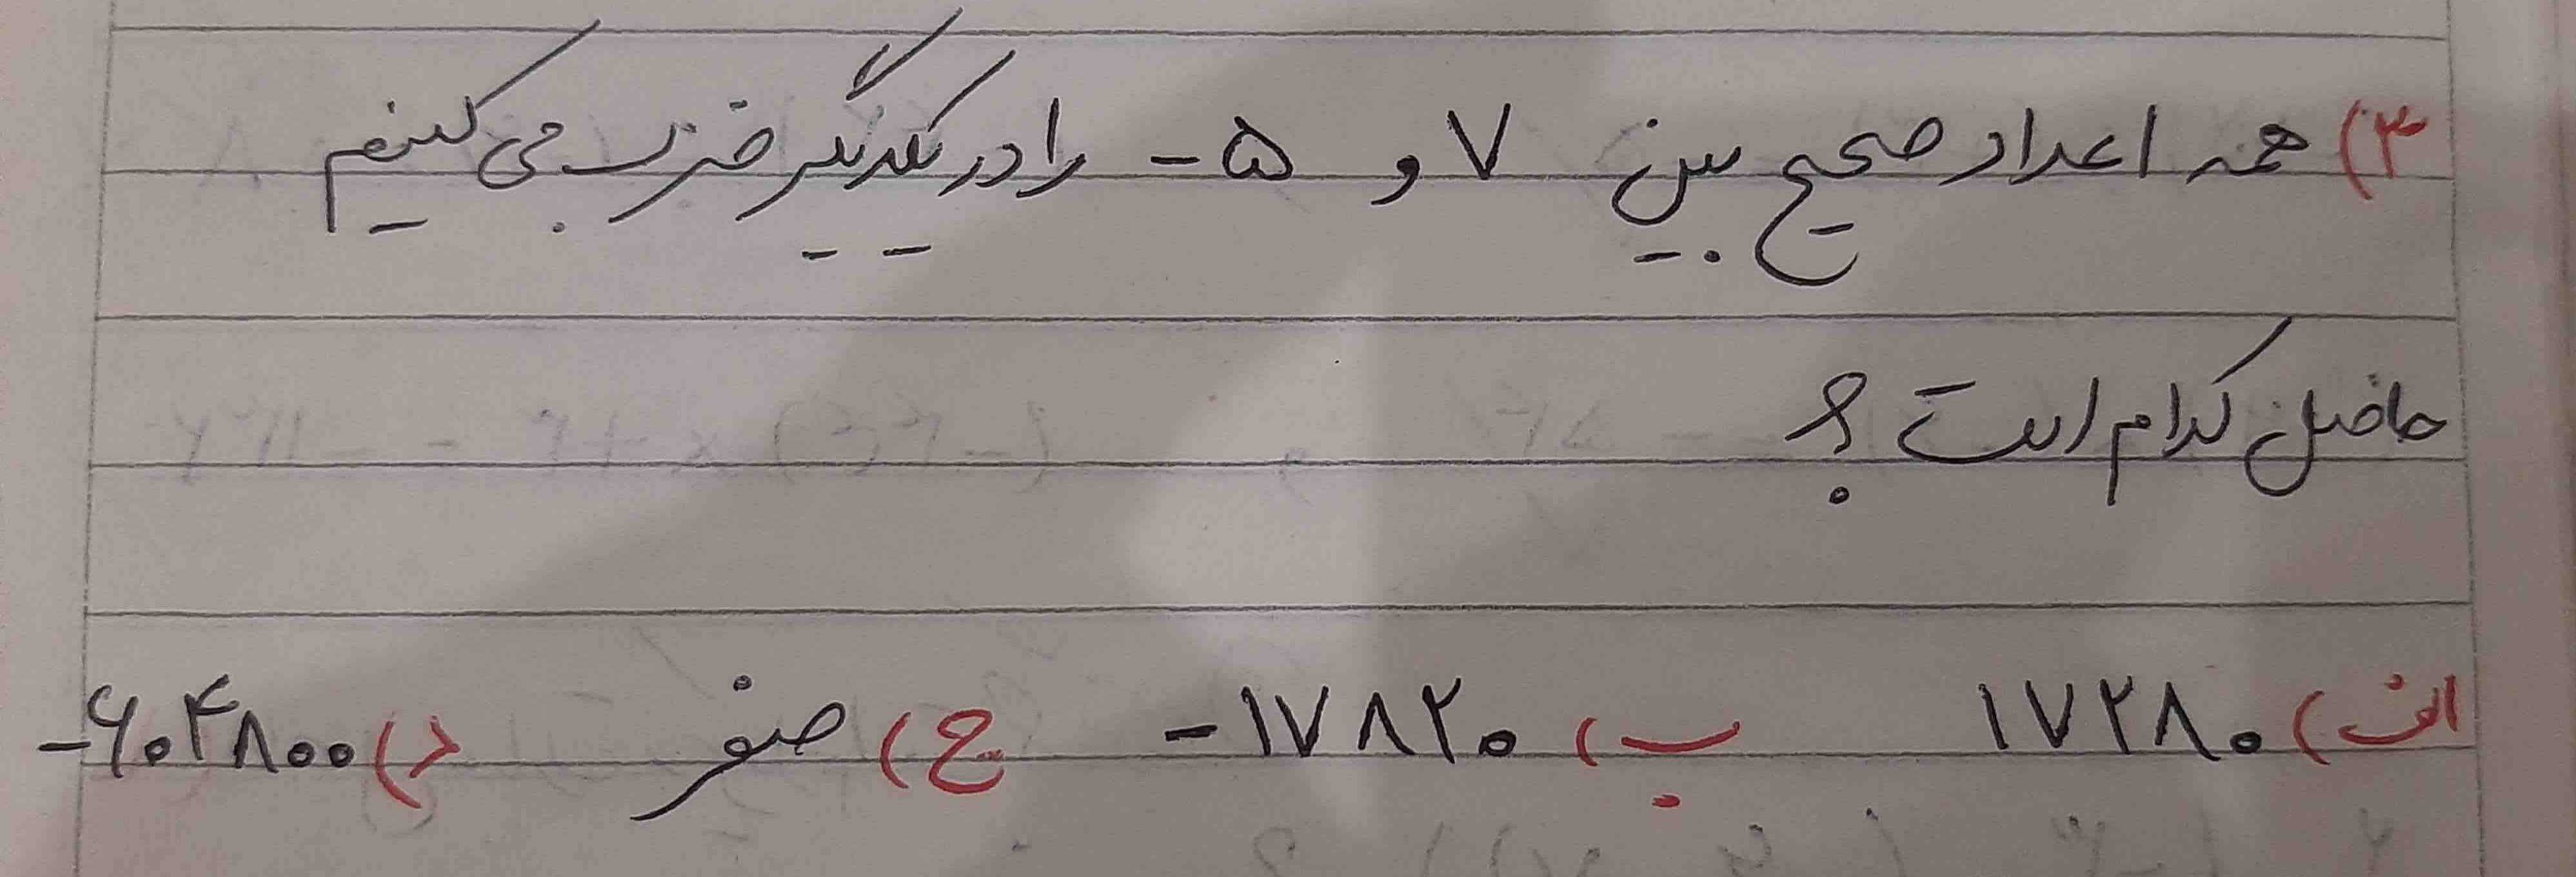 ۳) همه اعداد صحیح بین ۷ و ۵- را در یکدیگر ضرب می کنیم
حاصل کدام است؟
الف) ۱۷۲۸۰ ب) ۱۷۸۲۰- ج) صفر د) ۶۰۴۸۰۰-